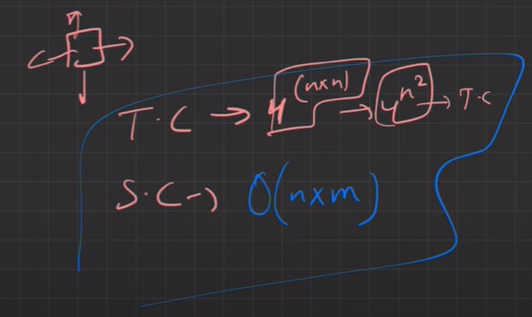 T.C → 4^(n×n) → 4^n² → T.C
S.C → O(n×m)